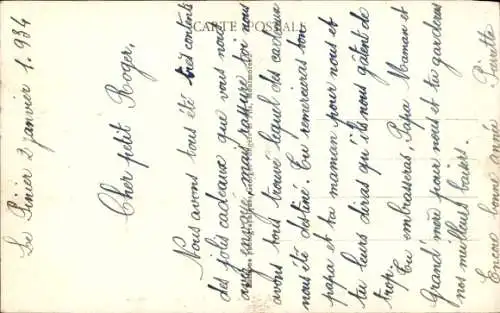 CARTE POSTALE
Le Pinier 2 janvier 1.934
Cher petit Roger,
Nous avons tous été très contents
des jolis cadeaux que vous nous
avez envoyé, mais rassure toi nous
avons tous trouvé lequel des cadeaux
nous été destiné. Tu remercieras ton
papa et ta maman pour nous et
tu leurs diras qu'ils nous gâtent de
trop.
Tu embrasseras, Papa Maman et
Grand' mère pour nous et tu garderas
nos meilleurs baisers.
Encore bonne année Pierrette